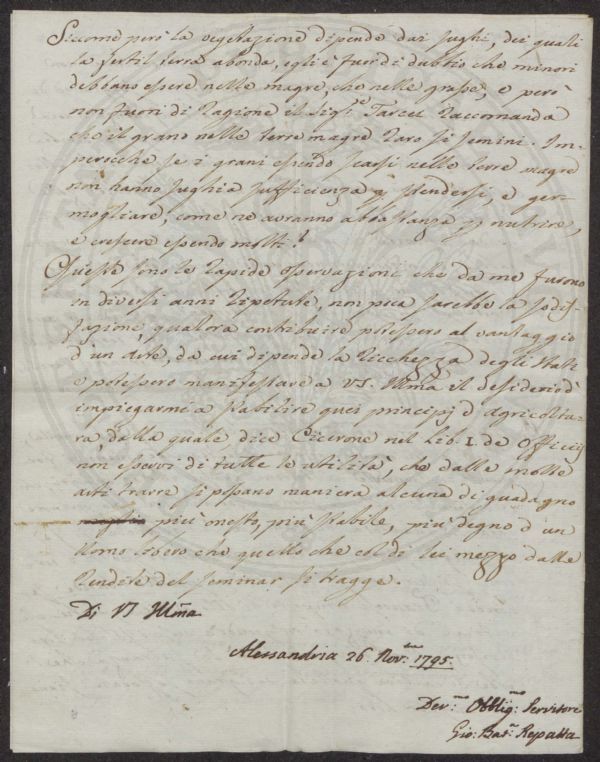 Siccome però la vegetazione dipende dai sughi, dei quali
la fertil terra abonda, egli è fuor di dubbio che minori
debbano essere nelle magre, che nelle grasse, e però
non fuori di ragione il Sig.r Tarcet raccomanda
che il grano nelle terre magre raro si semini. Im-
perocchè se i grani essendo scarsi nelle terre magre
non hanno sughi a sufficienza p stendersi, e ger-
mogliare, come ne avranno abbastanza p nutrire,
e crescere essendo molti?
Queste sono le rapide osservazioni che da me furono
in diversi anni ripetute, non poca sarebbe la sodis-
fazione qualora contribuire potessero al vantaggio
d'un arte, da cui dipende la ricchezza degli Stati
e potessero manifestare a VS. Illma il desiderio d
impiegarmi a stabilire quei principj d agricoltu-
ra, dalla quale dice Cicerone nel Lib. I de Officiis
non esservi di tutte le utilità, che dalle molte
arti trarre si possano maniera alcuna di guadagno
più onesto, più stabile, più degno d un
Uomo libero che quello che col di lei mezzo dalle
rendite del seminar si tragge.
Di VS Illma
Alessandria 26 Nov.bre 1795.
Dev.mo Obblig.mo Servitore
Gio: Bat.a Repatta